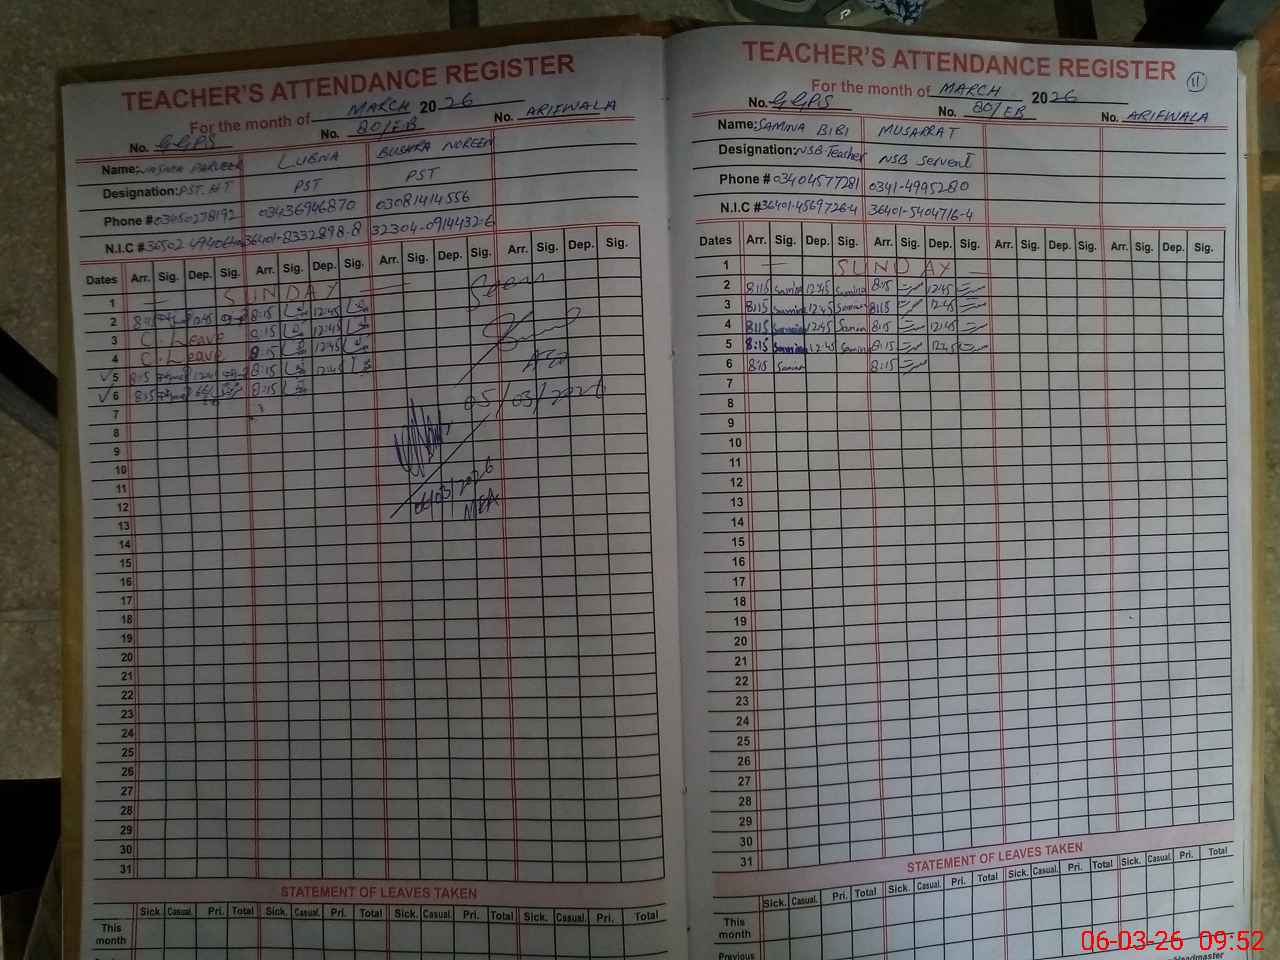 TEACHER'S ATTENDANCE REGISTER
For the month of MARCH 2026
No. GGPS No. 80/EB No. ARIFWALA
Name: PARVEEN LUBNA BUSHRA NOREEN
Designation: PST. HT PST PST
Phone # 03450278192 03436946870 03081414556
N.I.C # 36401-8332898-8 32304-0914432-6
Dates Arr. Sig. Dep. Sig. Arr. Sig. Dep. Sig. Arr. Sig. Dep. Sig. Arr. Sig. Dep. Sig.
1 SUNDAY
2 8:15 12:45 8:15 12:45
3 C. Leave 8:15 12:45
4 C. Leave 8:15 12:45
5 8:15 12:45 8:15 12:45
6 8:15 8:15
7
8
9
10
11
12
13
14
15
16
17
18
19
20
21
22
23
24
25
26
27
28
29
30
31
Seen
05/03/2026
06/03/2026
MEA
STATEMENT OF LEAVES TAKEN
Sick. Casual. Pri. Total Sick. Casual. Pri. Total Sick. Casual. Pri. Total Sick. Casual. Pri. Total
This
month
TEACHER'S ATTENDANCE REGISTER 11
For the month of MARCH 2026
No. GGPS No. 80/EB No. ARIFWALA
Name: SAMINA BIBI MUSARRAT
Designation: NSB-Teacher NSB Servent
Phone # 03404577281 0341-4995280
N.I.C # 36401-4569726-4 36401-5404716-4
Dates Arr. Sig. Dep. Sig. Arr. Sig. Dep. Sig. Arr. Sig. Dep. Sig. Arr. Sig. Dep. Sig.
1 SUNDAY
2 8:15 Samina 12:45 Samina 8:15 12:45
3 8:15 Samina 12:45 Samina 8:15 12:45
4 8:15 Samina 12:45 Samina 8:15 12:45
5 8:15 Samina 12:45 Samina 8:15 12:45
6 8:15 Samina 8:15
7
8
9
10
11
12
13
14
15
16
17
18
19
20
21
22
23
24
25
26
27
28
29
30
31
STATEMENT OF LEAVES TAKEN
Sick. Casual. Pri. Total Sick. Casual. Pri. Total Sick. Casual. Pri. Total
This
month
Previous
Headmaster
06-03-26 09:52